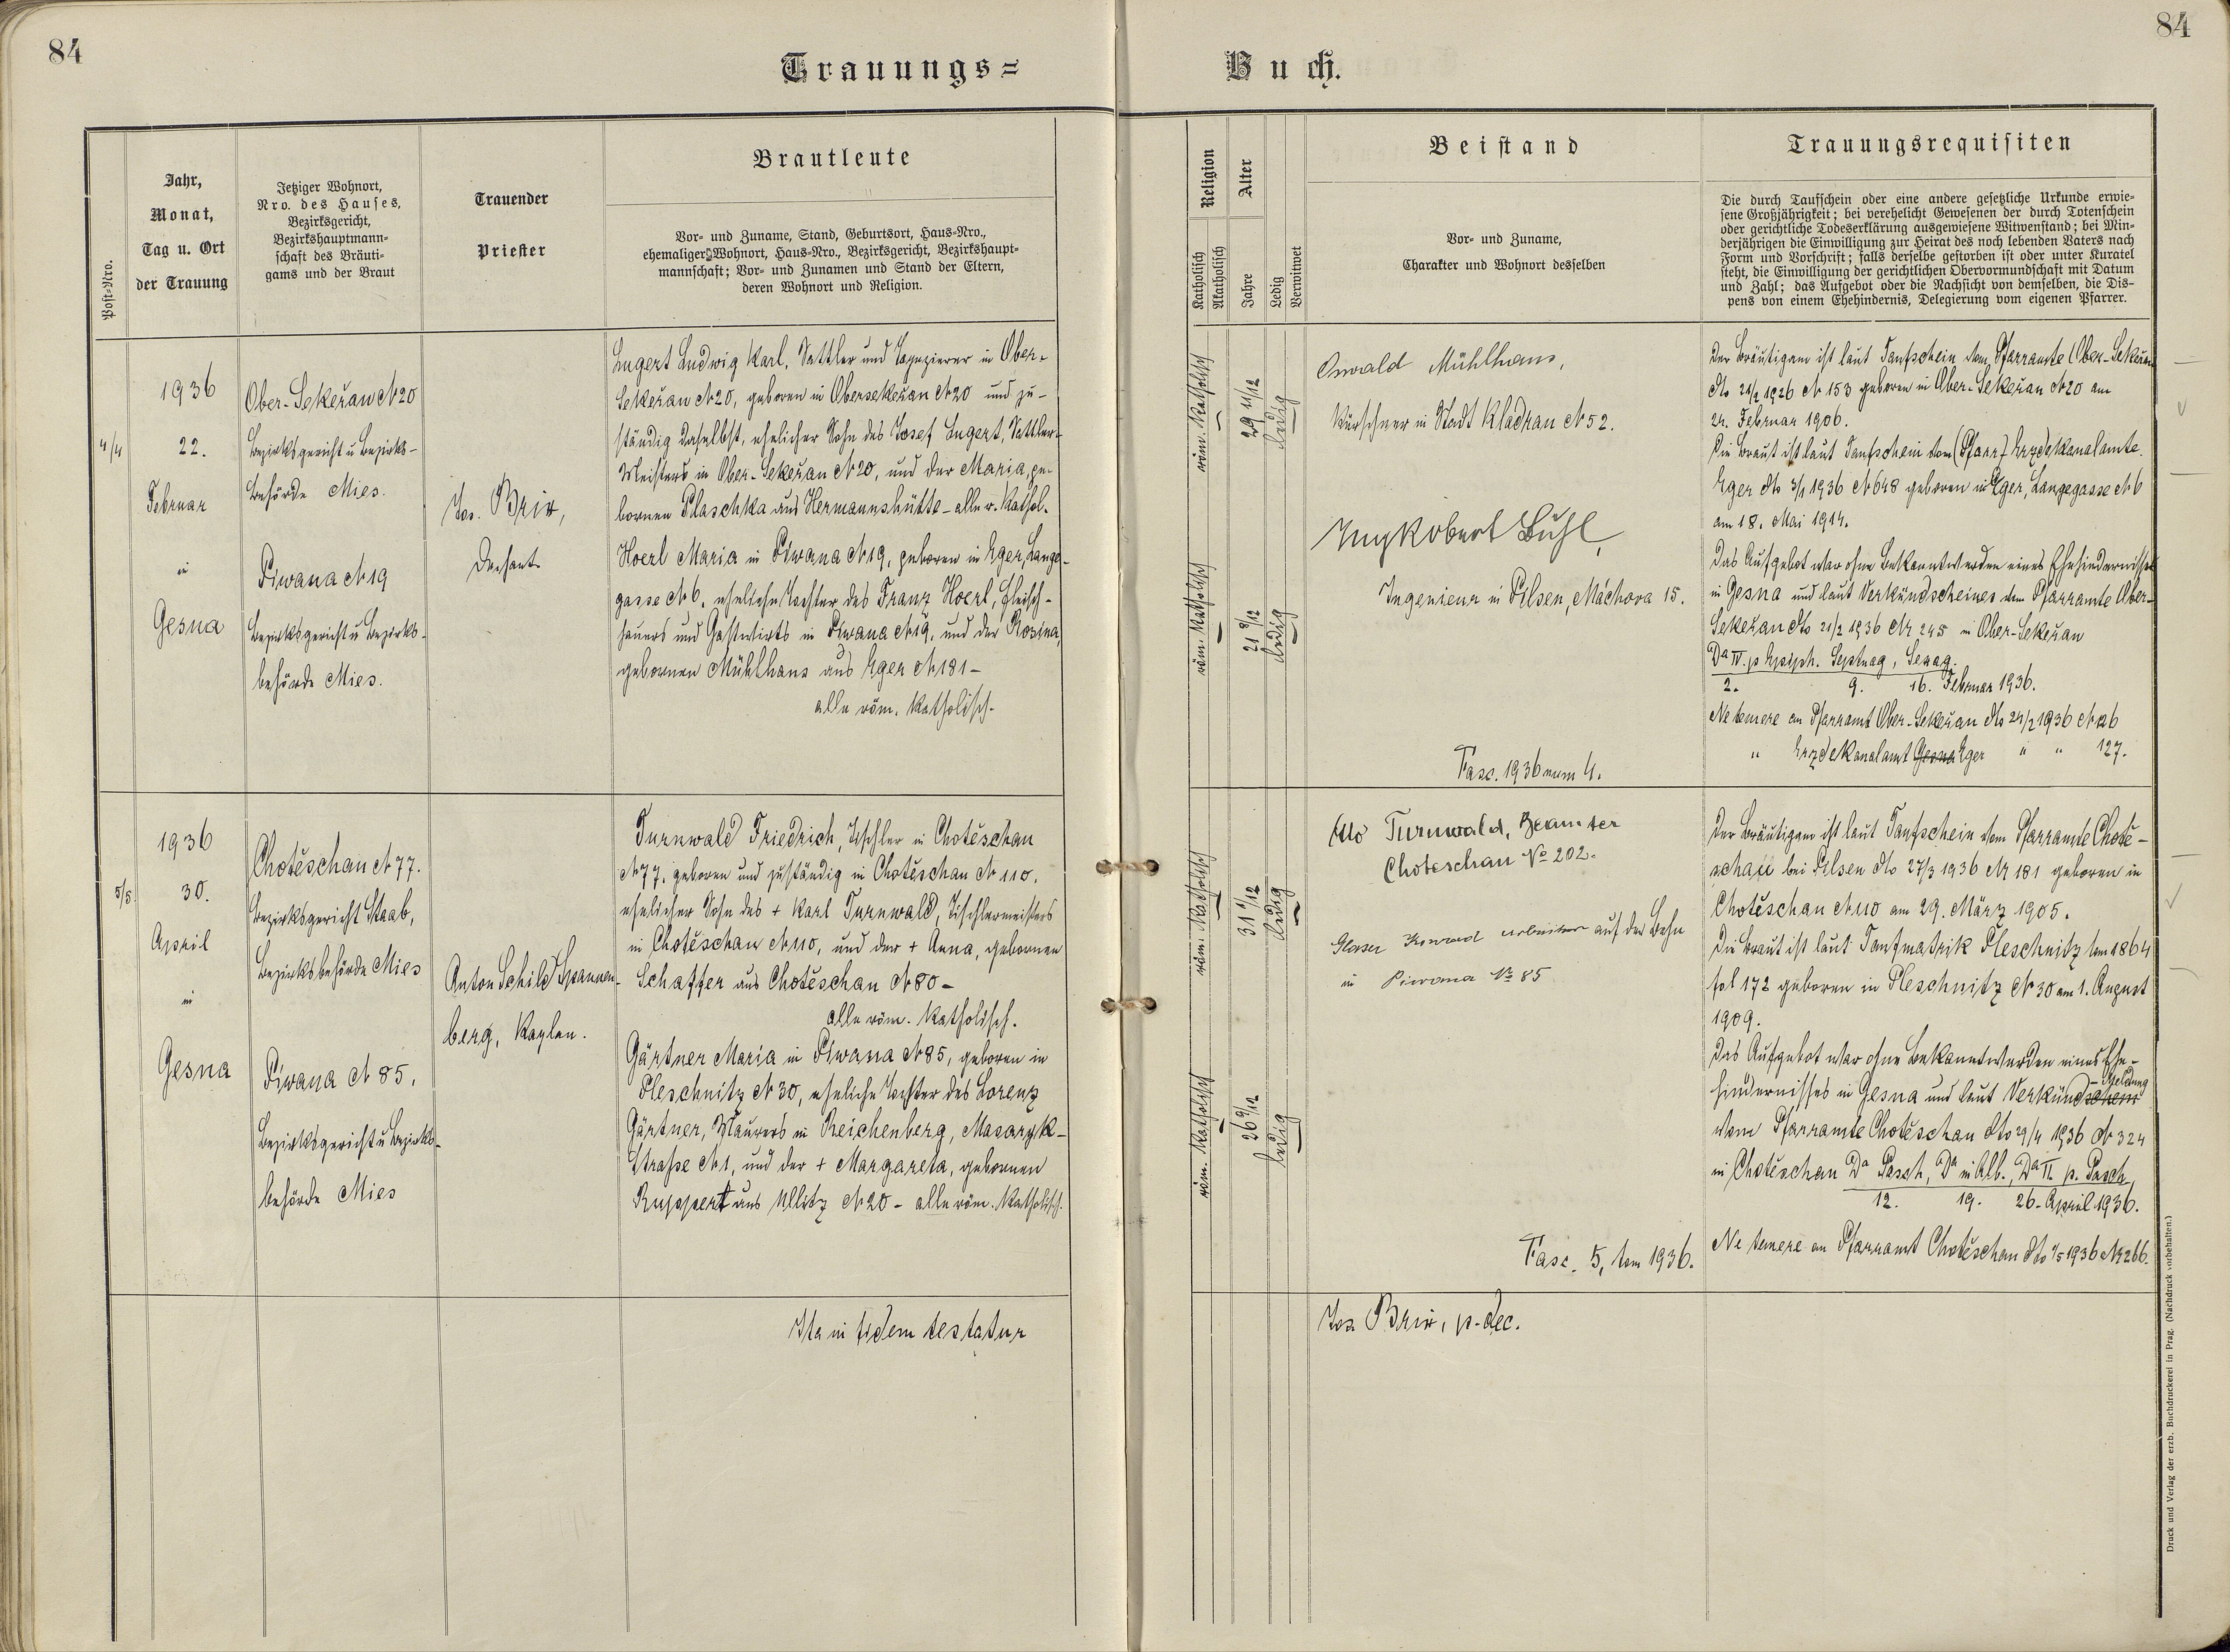 84
84
Trauungs=
Buch.
Post=Nro.
Jahr,
Monat,
Tag u. Ort
der Trauung
Jetziger Wohnort,
Nro. des Hauses,
Bezirksgericht,
Bezirkshauptmann=
schaft des Bräuti=
gams und der Braut
Trauender
Priester
Brautleute
Vor= und Zuname, Stand, Geburtsort, Haus=Nro.,
ehemaliger Wohnort, Haus=Nro., Bezirksgericht, Bezirkshaupt=
mannschaft; Vor= und Zunamen und Stand der Eltern,
deren Wohnort und Religion.
Religion
Katholisch
Akatholisch
Alter
Jahre
Ledig
Verwitwet
Beistand
Vor= und Zuname,
Charakter und Wohnort desselben
Trauungsrequisiten
Die durch Taufschein oder eine andere gesetzliche Urkunde erwie=
sene Großjährigkeit; bei verehelicht Gewesenen der durch Totenschein
oder gerichtliche Todeserklärung ausgewiesene Witwenstand; bei Min=
derjährigen die Einwilligung zur Heirat des noch lebenden Vaters nach
Form und Vorschrift; falls derselbe gestorben ist oder unter Kuratel
steht, die Einwilligung der gerichtlichen Obervormundschaft mit Datum
und Zahl; das Aufgebot oder die Nachsicht von demselben, die Dis=
pens von einem Ehehindernis, Delegierung vom eigenen Pfarrer.
4/4
1936
22.
Februar
in
Gesna
Ober-Sekeřan N 20
Bezirksgericht u Bezirks-
behörde Mies.
Piwana N 19
Bezirksgericht u Bezirks-
behörde Mies.
Jos. Brix,
Dechant
Lugert Ludwig Karl, Sattler und Tapezierer in Ober-
Sekeřan N 20, geboren in Obersekeřan N 20 und zu-
ständig daselbst, ehelicher Sohn des Josef Lugert, Sattler-
Meisters in Ober-Sekeřan N 20, und der Maria, ge-
bornen Plaschka aus Hermannshütte - alle r. kathol.
Hoerl Maria in Piwana N 19, geboren in Eger, Lange-
gasse N 6, eheliche Tochter des Franz Hoerl, Fleisch-
hauers und Gastwirts in Piwana N 19, und der Rosina,
gebornen Mühlhans aus Eger N 181 -
alle röm. katholisch.
röm. katholisch
29 11/12
ledig
röm. katholisch
21 9/12
ledig
Oswald Mühlhans,
Kürschner in Stadt Kladrau N 52.
Ing Robert Bühl,
Ingenieur in Pilsen, Máchova 15.
Fasc. 1936 num 4.
Der Bräutigam ist laut Taufschein vom Pfarramte Ober-Sekeřan
dto 21/2 1926 N 153 geboren in Ober-Sekeřan N 20 am
24. Februar 1906.
Die Braut ist laut Taufschein vom (Pfarr) Erzdekanalamte
Eger dto 3/1 1936 N 648 geboren in Eger, Langegasse N 6
am 18. Mai 1914.
Das Aufgebot war ohne Bekanntwerden eines Ehehindernisses
in Gesna und laut Verkündscheines vom Pfarramte Ober-
Sekeřan dto 21/2 1936 Nr 245 in Ober-Sekeřan
Da IV. p Epiph. Septuag, Sexag.
2. 9. 16. Februar 1936.
Ne temere an Pfarramt Ober-Sekeřan dto 24/2 1936 N 126
" Erzdekanalamt Gesna Eger " " 127.
5/5
1936
30.
April
in
Gesna
Chotěschau N 77.
Bezirksgericht Staab,
Bezirksbehörde Mies
Piwana N 85.
Bezirksgericht u Bezirks-
behörde Mies
Anton Schild Spannen-
berg, Kaplan.
Turnwald Friedrich, Tischler in Chotěschau
N 77, geboren und zuständig in Chotěschau N 110.
ehelicher Sohn des + Karl Turnwald, Tischlermeisters
in Chotěschau N 110, und der + Anna, gebornen
Schaffer aus Chotěschau N 80 -
alle röm. katholisch.
Gärtner Maria in Piwana N 85, geboren in
Pleschnitz N 30, eheliche Tochter des Lorenz
Gärtner, Maurers in Reichenberg, Masaryk-
Straße N 1, und der + Margareta, gebornen
Ruppert aus Ullitz N 20 - alle röm. katholisch.
röm. katholisch
31 1/12
ledig
röm. katholisch
26 9/12
ledig
Otto Turnwald, Beamter
Choteschau No 202.
Glaser Konrad Arbeiter auf der Bahn
in Piwana No 85
Fasc. 5, vom 1936.
Der Bräutigam ist laut Taufschein vom Pfarramte Chotě-
schau bei Pilsen dto 27/3 1936 Nr 181 geboren in
Chotěschau N 110 am 29. März 1905.
Die Braut ist laut Taufmatrik Pleschnitz vom 1864
fol 172 geboren in Pleschnitz N 30 am 1. August
1909.
Das Aufgebot war ohne Bekanntwerden eines Ehe-
hindernisses in Gesna und laut Verkündschein -Meldung
vom Pfarramte Chotěschau dto 29/4 1936 N 324
in Chotěschau Da Pasch, Da in Alb., Da II. p. Pasch,
12. 19. 26. April 1936.
Ne temere an Pfarramt Chotěschau dto 1/5 1936 N 266.
Ita in fidem testatur
Jos Brix, p. dec.
Druck und Verlag der erzb. Buchdruckerei in Prag. (Nachdruck vorbehalten.)